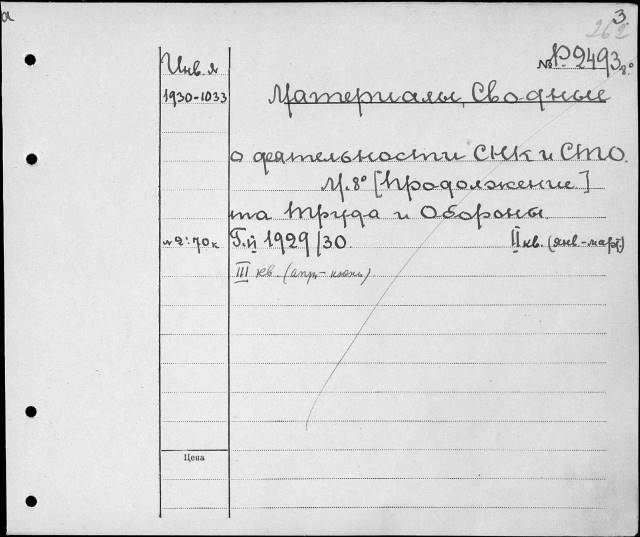 а
3.
262
Инв. л
№ Р-2493 8°
1930-1033
Материалы Сводные
о деятельности СНК и СТО.
М. 8° [Продолжение]
та Труда и Обороны.
№ 2: 70 к
Г. II 1929/30.
II кв. (янв.-март)
III кв. (апр.-июнь)
Цена